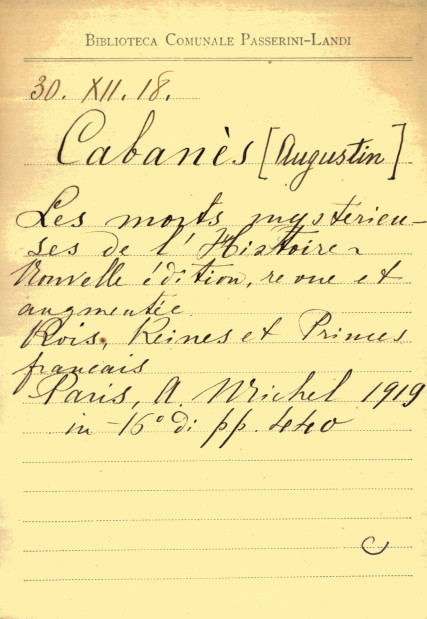 BIBLIOTECA COMUNALE PASSERINI-LANDI
30. XII. 18.
Cabanès [Augustin]
Les morts mystérieu-
ses de l'Histoire
Nouvelle édition, revue et
augmentée
Rois, Reines et Princes
français
Paris, A. Michel 1919
in-16° di pp. 440